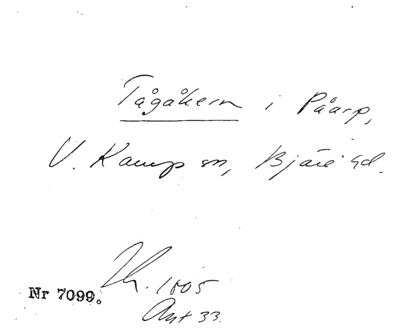 Tågåkern i Påarp,
V. Karup sn, Bjäre hd.
1805
Nr 7099.
Ant 33.